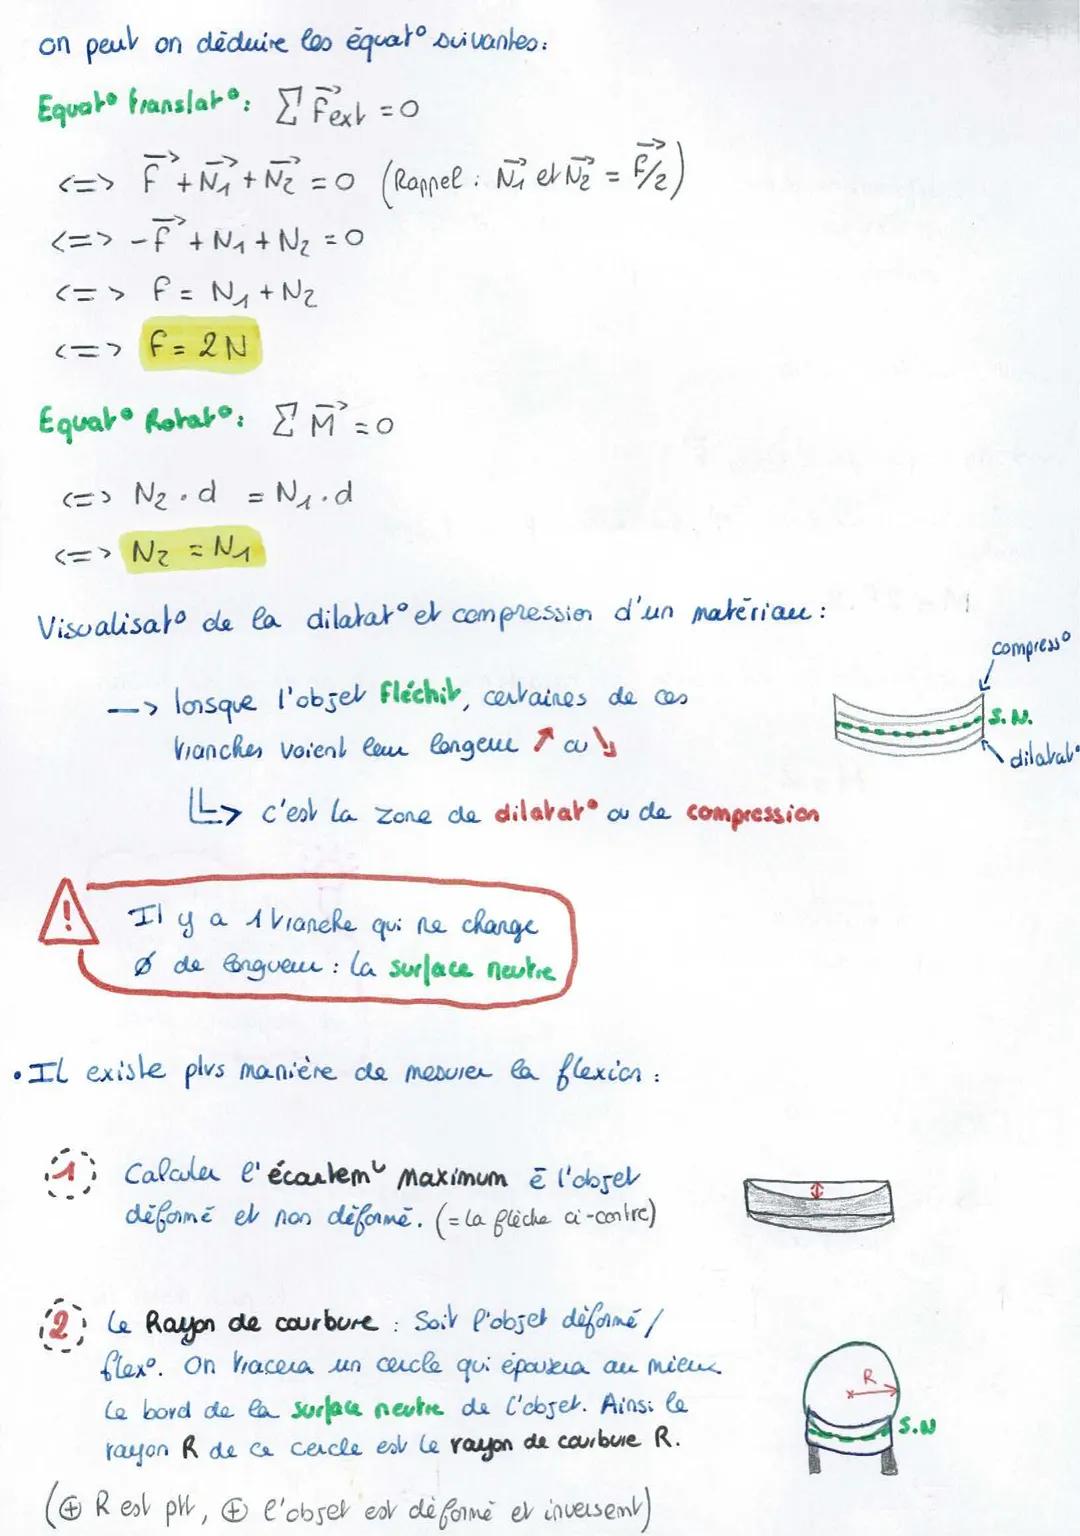 on peut en déduire les équat° suivantes:
Equat° translat°: Σ F⃗ext = 0
<=> F⃗ + N⃗1 + N⃗2 = 0 (Rappel : N⃗1 et N⃗2 = F⃗/2)
<=> -F⃗ + N1 + N2 = 0
<=> F = N1 + N2
<=> F = 2N
Equat° Rotat°: Σ M⃗ = 0
<=> N2 . d = N1 . d
<=> N2 = N1
Visualisat° de la dilatat° et compression d'un matériau :
compress°
S.N.
dilatat°
—> lorsque l'objet fléchit, certaines de ces
tranches voient leur longeur ↗ ou ↘
↳> c'est la zone de dilatat° ou de compression
! Il y a 1 tranche qui ne change
Ø de longueur : la surface neutre
• Il existe plrs manière de mesurer la flexion :
1 Calculer l'écartemt maximum ē l'objet
déformé et non déformé. (= la flèche ci-contre)
2 Le Rayon de courbure : Soit l'objet déformé /
flex°. On tracera un cercle qui épousera au mieux
le bord de la surface neutre de l'objet. Ainsi le
rayon R de ce cercle est le rayon de courbure R.
R
S.N
(⊕ R est ptt, ⊕ l'objet est déformé et inversemt)